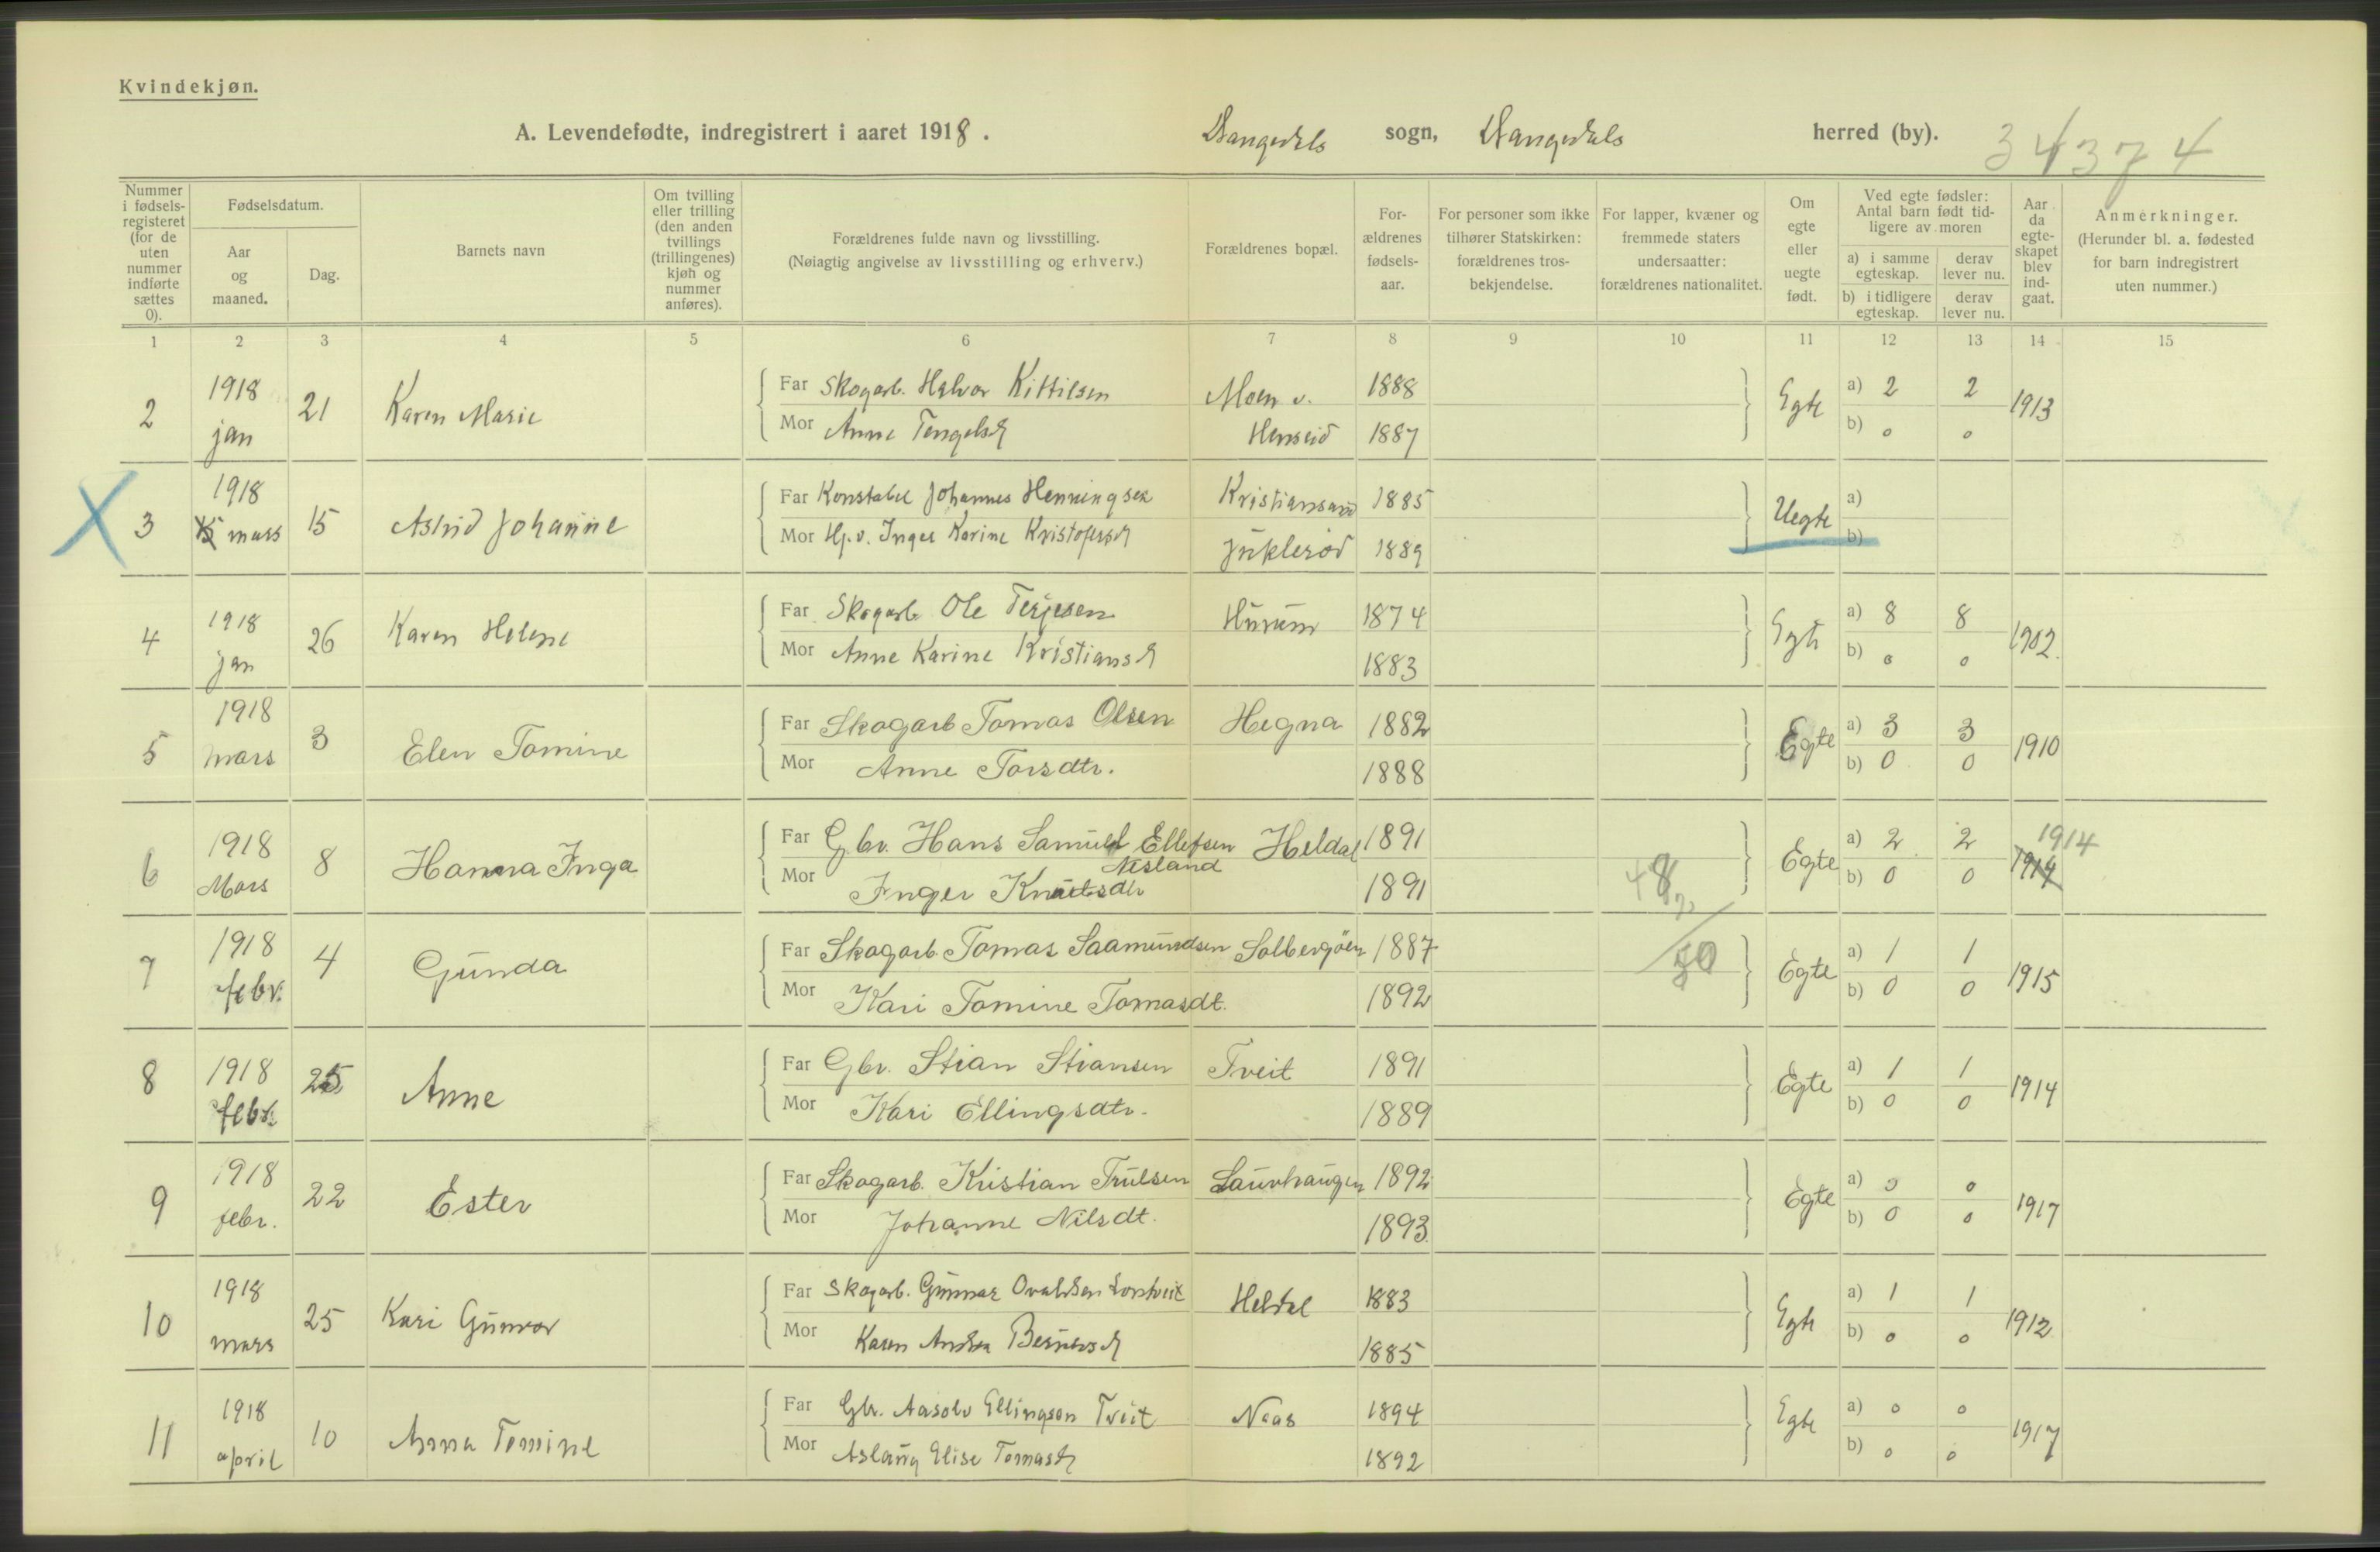 Kvindekjøn.
A. Levendefødte, indregistrert i aaret 1918. Drangedals sogn, Drangedals herred (by). 34374
Nummer i fødsels-registeret (for de uten nummer indførte sættes 0).
Fødselsdatum.
Aar og maaned.
Dag.
Barnets navn
Om tvilling eller trilling (den anden tvillings (trillingenes) kjøn og nummer anføres).
Forældrenes fulde navn og livsstilling.
(Nøiagtig angivelse av livsstilling og erhverv.)
Forældrenes bopæl.
For-ældrenes fødsels-aar.
For personer som ikke tilhører Statskirken: forældrenes tros-bekjendelse.
For lapper, kvæner og fremmede staters undersaatter: forældrenes nationalitet.
Om egte eller uegte født.
Ved egte fødsler: Antal barn født tid-ligere av moren
a) i samme egteskap. derav lever nu.
b) i tidligere egteskap. derav lever nu.
Aar da egte-skapet blev ind-gaat.
Anmerkninger.
(Herunder bl. a. fødested for barn indregistrert uten nummer.)
1 2 3 4 5 6 7 8 9 10 11 12 13 14 15
2 1918 jan 21 Karen Marie
Far Skogarb. Halvor Kittilsen Moen v. 1888 Egte a) 2 2 1913
Mor Anne Tengelsd Henseid 1887 b) 0 0
X 3 1918 mars 15 Astrid Johanne
Far Konstabel Johannes Henningsen Kristiansand 1885 Uegte a)
Mor Hj.v. Inger Karine Kristofersd Juklerød 1889 b)
4 1918 jan 26 Karen Helene
Far Skogarb Ole Terjesen Hunum 1874 Egte a) 8 8 1902.
Mor Anne Karine Kristiansd 1883 b) 0 0
5 1918 mars 3 Elen Tomine
Far Skogarb Tomas Olsen Hegna 1882 Egte a) 3 3 1910
Mor Anne Torsdtr. 1888 b) 0 0
6 1918 Mars 8 Hanna Inga
Far Gbr. Hans Samuel Ellefsen Heldal 1891 Egte a) 2 2 1914
Nesland
Mor Inger Knutsdtr 1891 b) 0 0 1914
48
50
7 1918 febr. 4 Gunda
Far Skogarb Tomas Saamundsen Solbergöen 1887 Egte a) 1 1 1915
Mor Kari Tomine Tomasdt. 1892 b) 0 0
8 1918 febr. 25 Anne
Far Gbr. Stian Stiansen Tveit 1891 Egte a) 1 1 1914
Mor Kari Ellingsdtr. 1889 b) 0 0
9 1918 febr. 22 Ester
Far Skogarb. Kristian Trulsen Laurhaugen 1892 Egte a) 0 0 1917
Mor Johanne Nilsdt. 1893 b) 0 0
10 1918 mars 25 Kari Gunvor
Far Skogarb. Gunnar Ovaldsen Heldal 1883 Egte a) 1 1 1912
Mor Karen Andrea 1885 b) 0 0
11 1918 april 10 Anna Tomine
Far Gbr. Aasolv Ellingsen Tveit Naas 1894 Egte a) 0 0 1917
Mor Aslaug Elise Tomasd 1892 b) 0 0